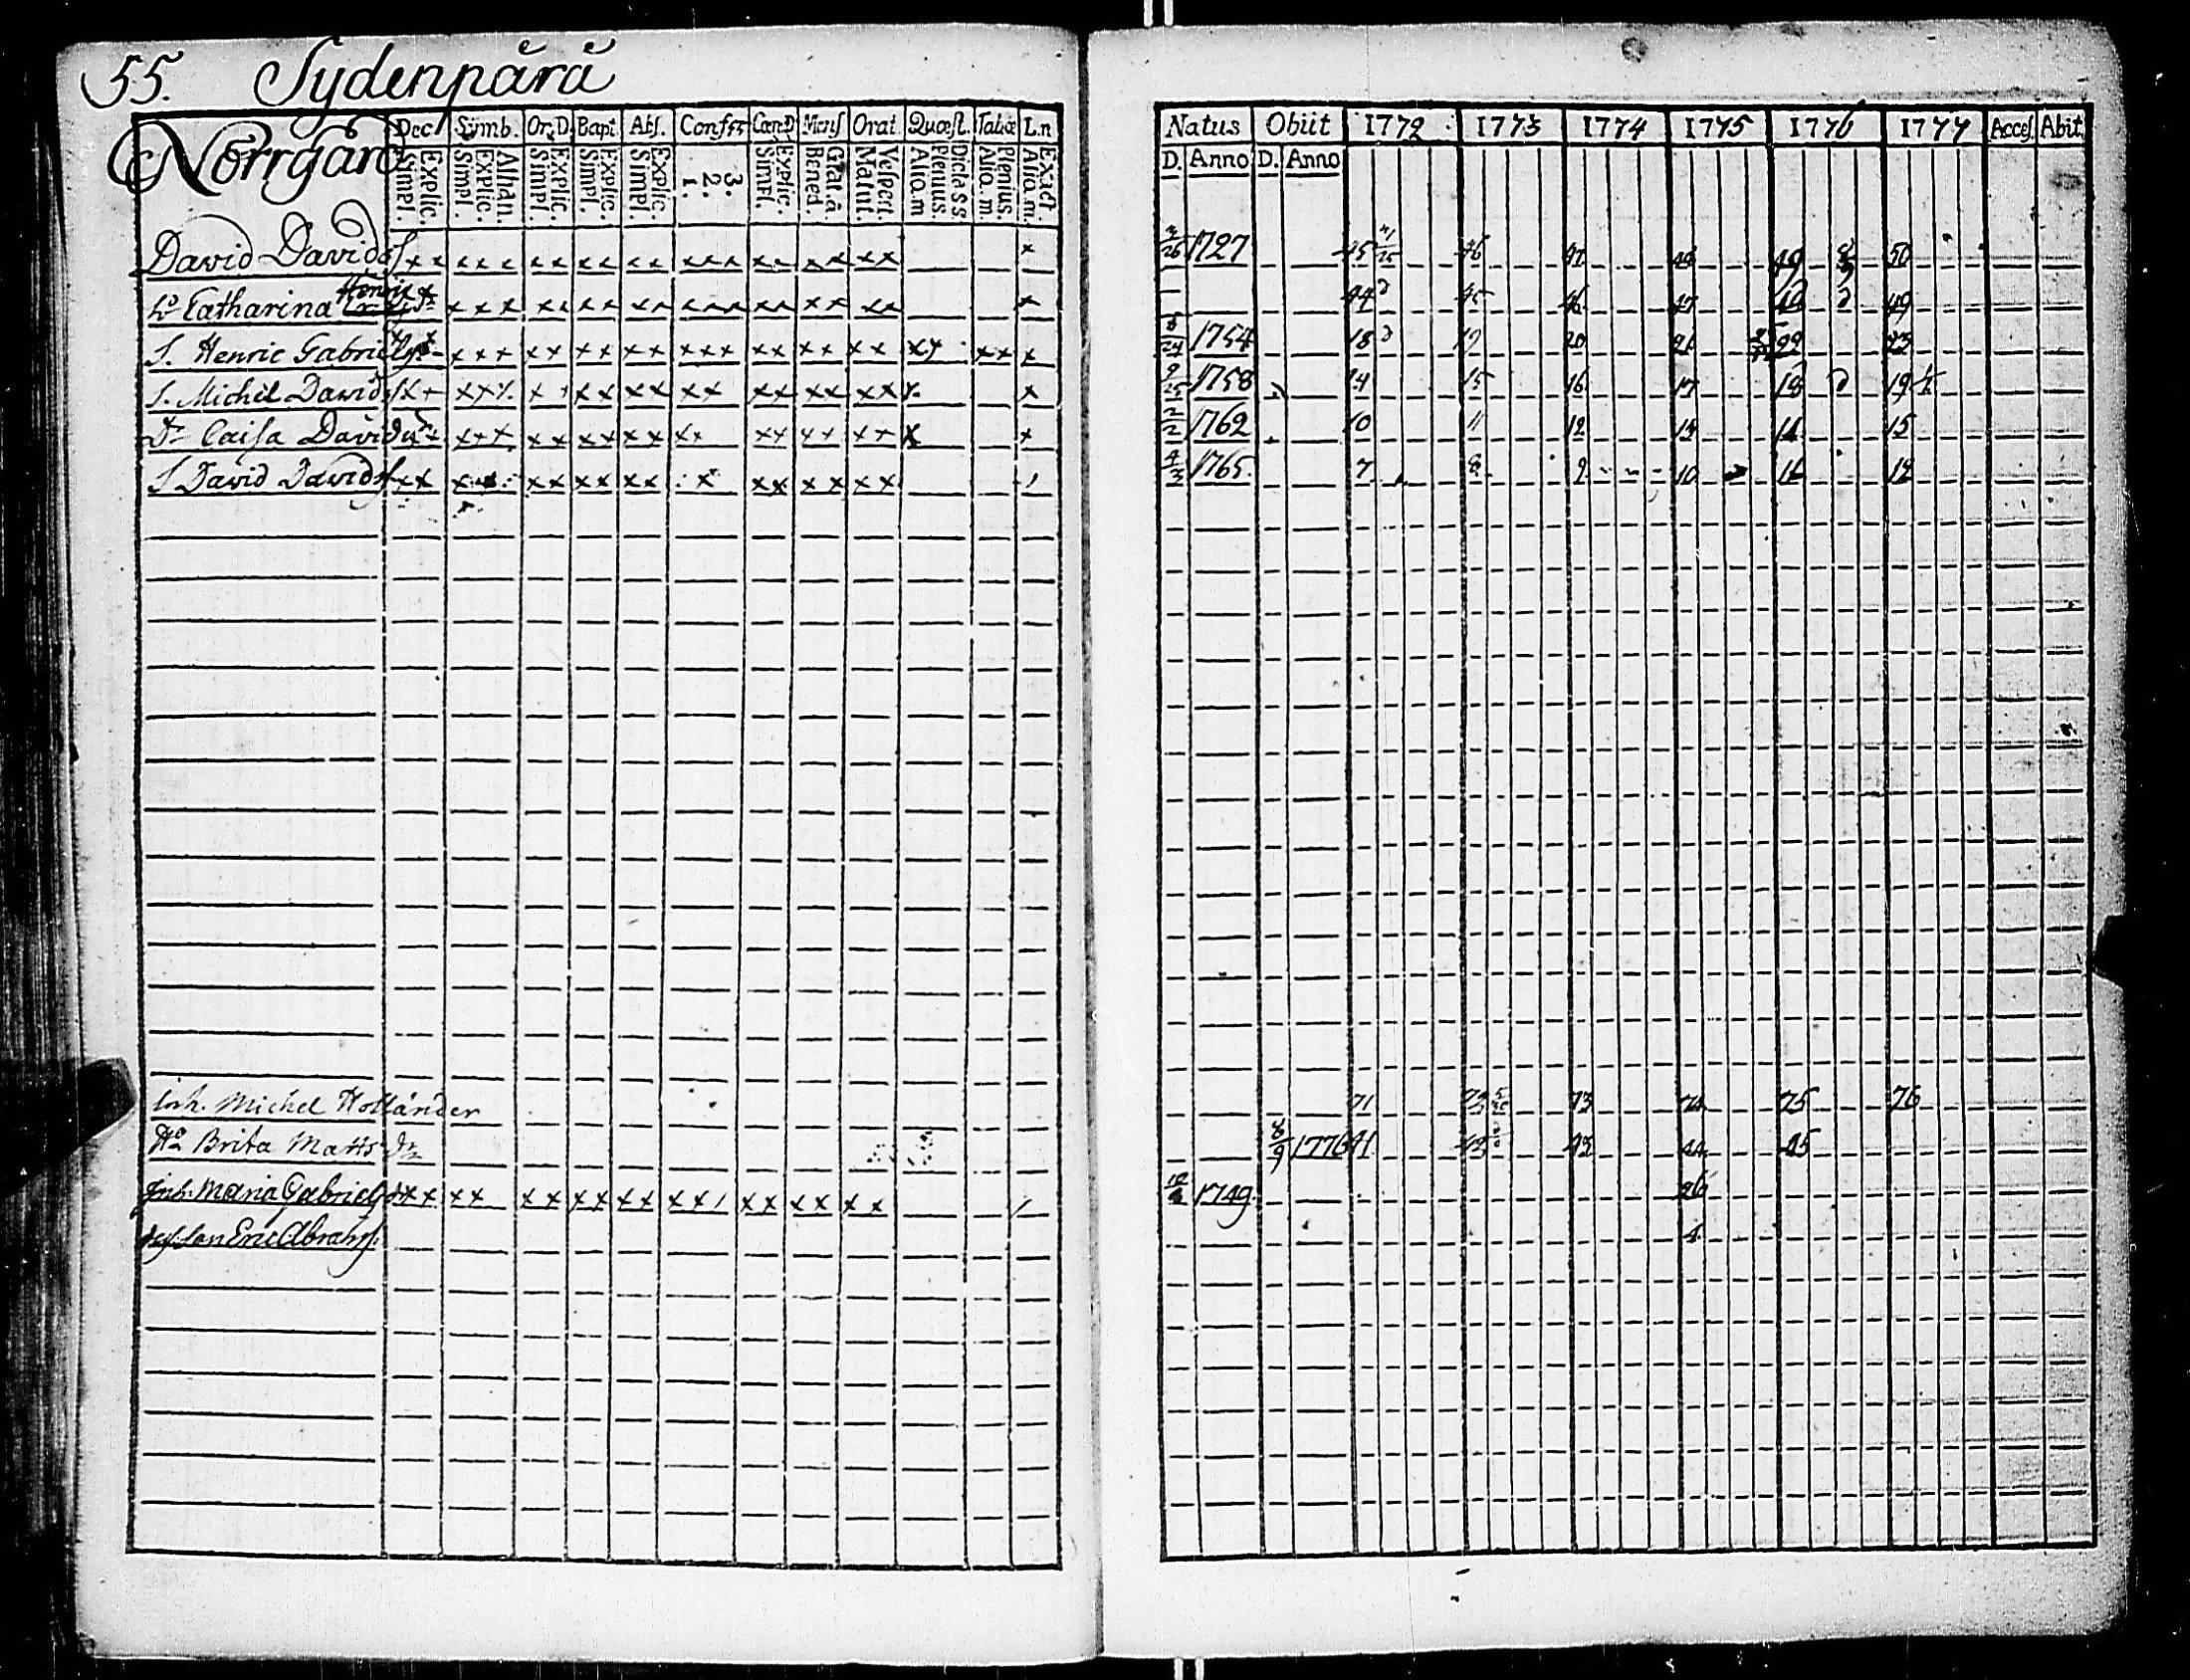 55. Sydenpärä
Norrgård
Dec. Symb. Or. D. Bapt. Abs. Confss. Cœn. D. Mens. Orat. Quæst. Tabæ L.n.
Explic. Simpl. Athan. Explic. Simpl. Explic. Simpl. Explic. Simpl. Explic. Simpl. 3. 2. 1. Explic. Simpl. Grat. a. Bened. Vespert. Matut. Dicta s s. Plenius. Aliq. m Plenius. Aliq. m. Exact. Aliq. m.
Natus Obiit 1772 1773 1774 1775 1776 1777 Acces. Abit.
D. Anno D. Anno
David Davids x x x x x x x x x x x x x x x x x x x x x 3/26 1727 45 46 47 48 49 8/9 50
Catharina Henrics dr x x x x x x x x x x x x x x x x x x x 44 45 46 47 48 49
S. Henric Gabriels x x x x x x x x x x x x x x x x x x x x x x x 1754 18 19 20 21 22 23
S. Michel Davids x x x x x x x x x x x x x x x x x x x x x 9/25 1758 14 15 16 17 18 19
Dr Caisa Davids x x x x x x x x x x x x x x x x x x x 2/2 1762 10 11 12 13 14 15
S David Davids x x x x x x x x x x x x x x x x 4/3 1765. 7 8 9 10 11 12
Inh. Michel Holländer 71 72 73 74 75 76
Ho Brita Matts dr 8/9 1776 41 42 43 44 45
Inh. Maria Gabriels dr x x x x x x x x x x x x x x x x x x 1749 26
Eric Abrahs. 4